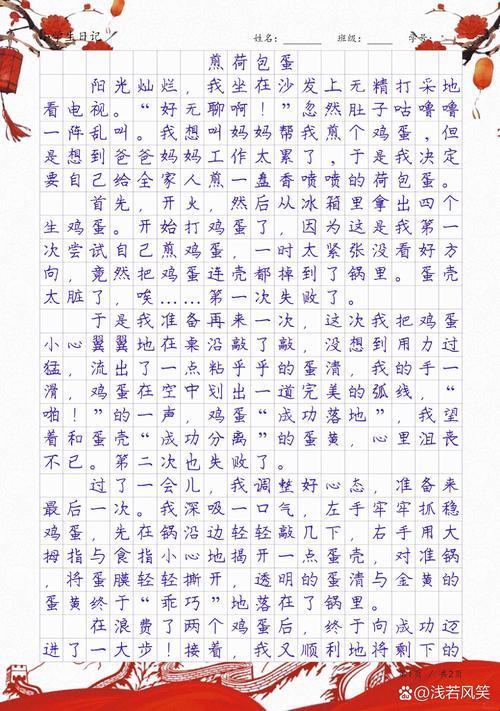 学生日记
姓名：______ 班级：______ 学号：
煎荷包蛋
阳光灿烂，我坐在沙发上无精打采地
看电视。“好无聊啊！”忽然肚子咕噜噜
一阵乱叫。我想叫妈妈帮我煎个鸡蛋，但
是想到爸爸妈妈工作太累了，于是我决定
要自己给全家人煎一盘香喷喷的荷包蛋。
首先，开火，然后从冰箱里拿出四个
生鸡蛋。开始打鸡蛋了，因为这是我第一
次尝试自己煎鸡蛋，一时太紧张没看好方
向，竟然把鸡蛋连壳都掉到了锅里。蛋壳
太脏了，唉……第一次失败了。
于是我准备再来一次，这次我把鸡蛋
小心翼翼地在桌沿敲了敲，没想到用力过
猛，流出了一点粘乎乎的蛋清，我的手一
滑，鸡蛋在空中划出一道完美的弧线，“
啪！”的一声，鸡蛋“成功落地”，我望
着和蛋壳“成功分离”的蛋黄，心里沮丧
不已。第二次也失败了。
过了一会儿，我调整好心态，准备来
最后一次。我深吸一口气，左手牢牢抓稳
鸡蛋，先在锅沿边轻轻敲几下，右手用大
拇指与食指小心地揭开一点蛋壳，对准锅
，将蛋膜轻轻撕开，透明的蛋清与金黄的
蛋黄终于“乖巧”地落在了锅里。
在浪费了两个鸡蛋后，终于向成功迈
进了一大步！接着，我又顺利地将剩下的
第1页 / 共2页
百度 @浅若风笑